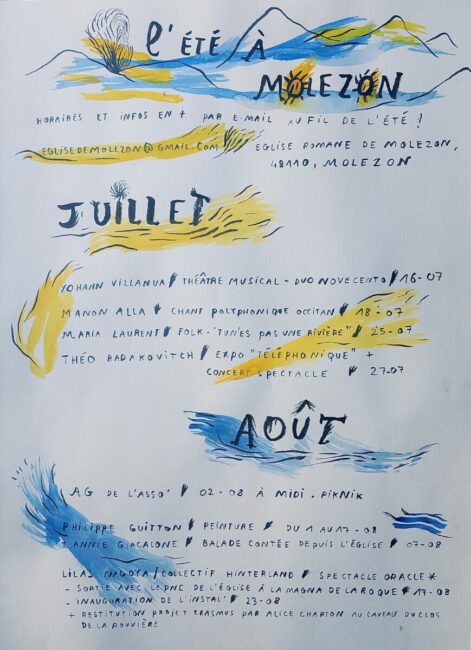 L'ÉTÉ À
MOLEZON
HORAIRES ET INFOS EN + PAR E-MAIL AU FIL DE L'ÉTÉ !
EGLISEDEMOLEZON@GMAIL.COM EGLISE ROMANE DE MOLEZON,
48110, MOLEZON
JUILLET
YOHANN VILLANUA / THÉÂTRE MUSICAL - DUO NOVECENTO / 16-07
MANON ALLA / CHANT POLYPHONIQUE OCCITAN / 18-07
MARIA LAURENT / FOLK - "TU N'ES PAS UNE RIVIÈRE" / 25-07
THÉO RADAKOVITCH / EXPO "TÉLÉPHONIQUE" +
CONCERT SPECTACLE / 27-07
AOÛT
AG DE L'ASSO / 02-08 À MIDI. PIKNIK
PHILIPPE GUITTON / PEINTURE / DU 1 AU 17-08
ANNIE GIACALONE / BALADE CONTÉE DEPUIS L'ÉGLISE / 07-08
LILAS NAGOYA / COLLECTIF HINTERLAND / SPECTACLE ORACLE *
- SORTIE AVEC LE PNC DE L'ÉGLISE À LA MAGNA DE LA ROQUE / 17-08
- INAUGURATION DE L'INSTAL' / 23-08
+ RESTITUTION PROJET ERASMUS PAR ALICE CHARTON AU CAVEAU DU CLOS
DE LA BOUVIÈRE